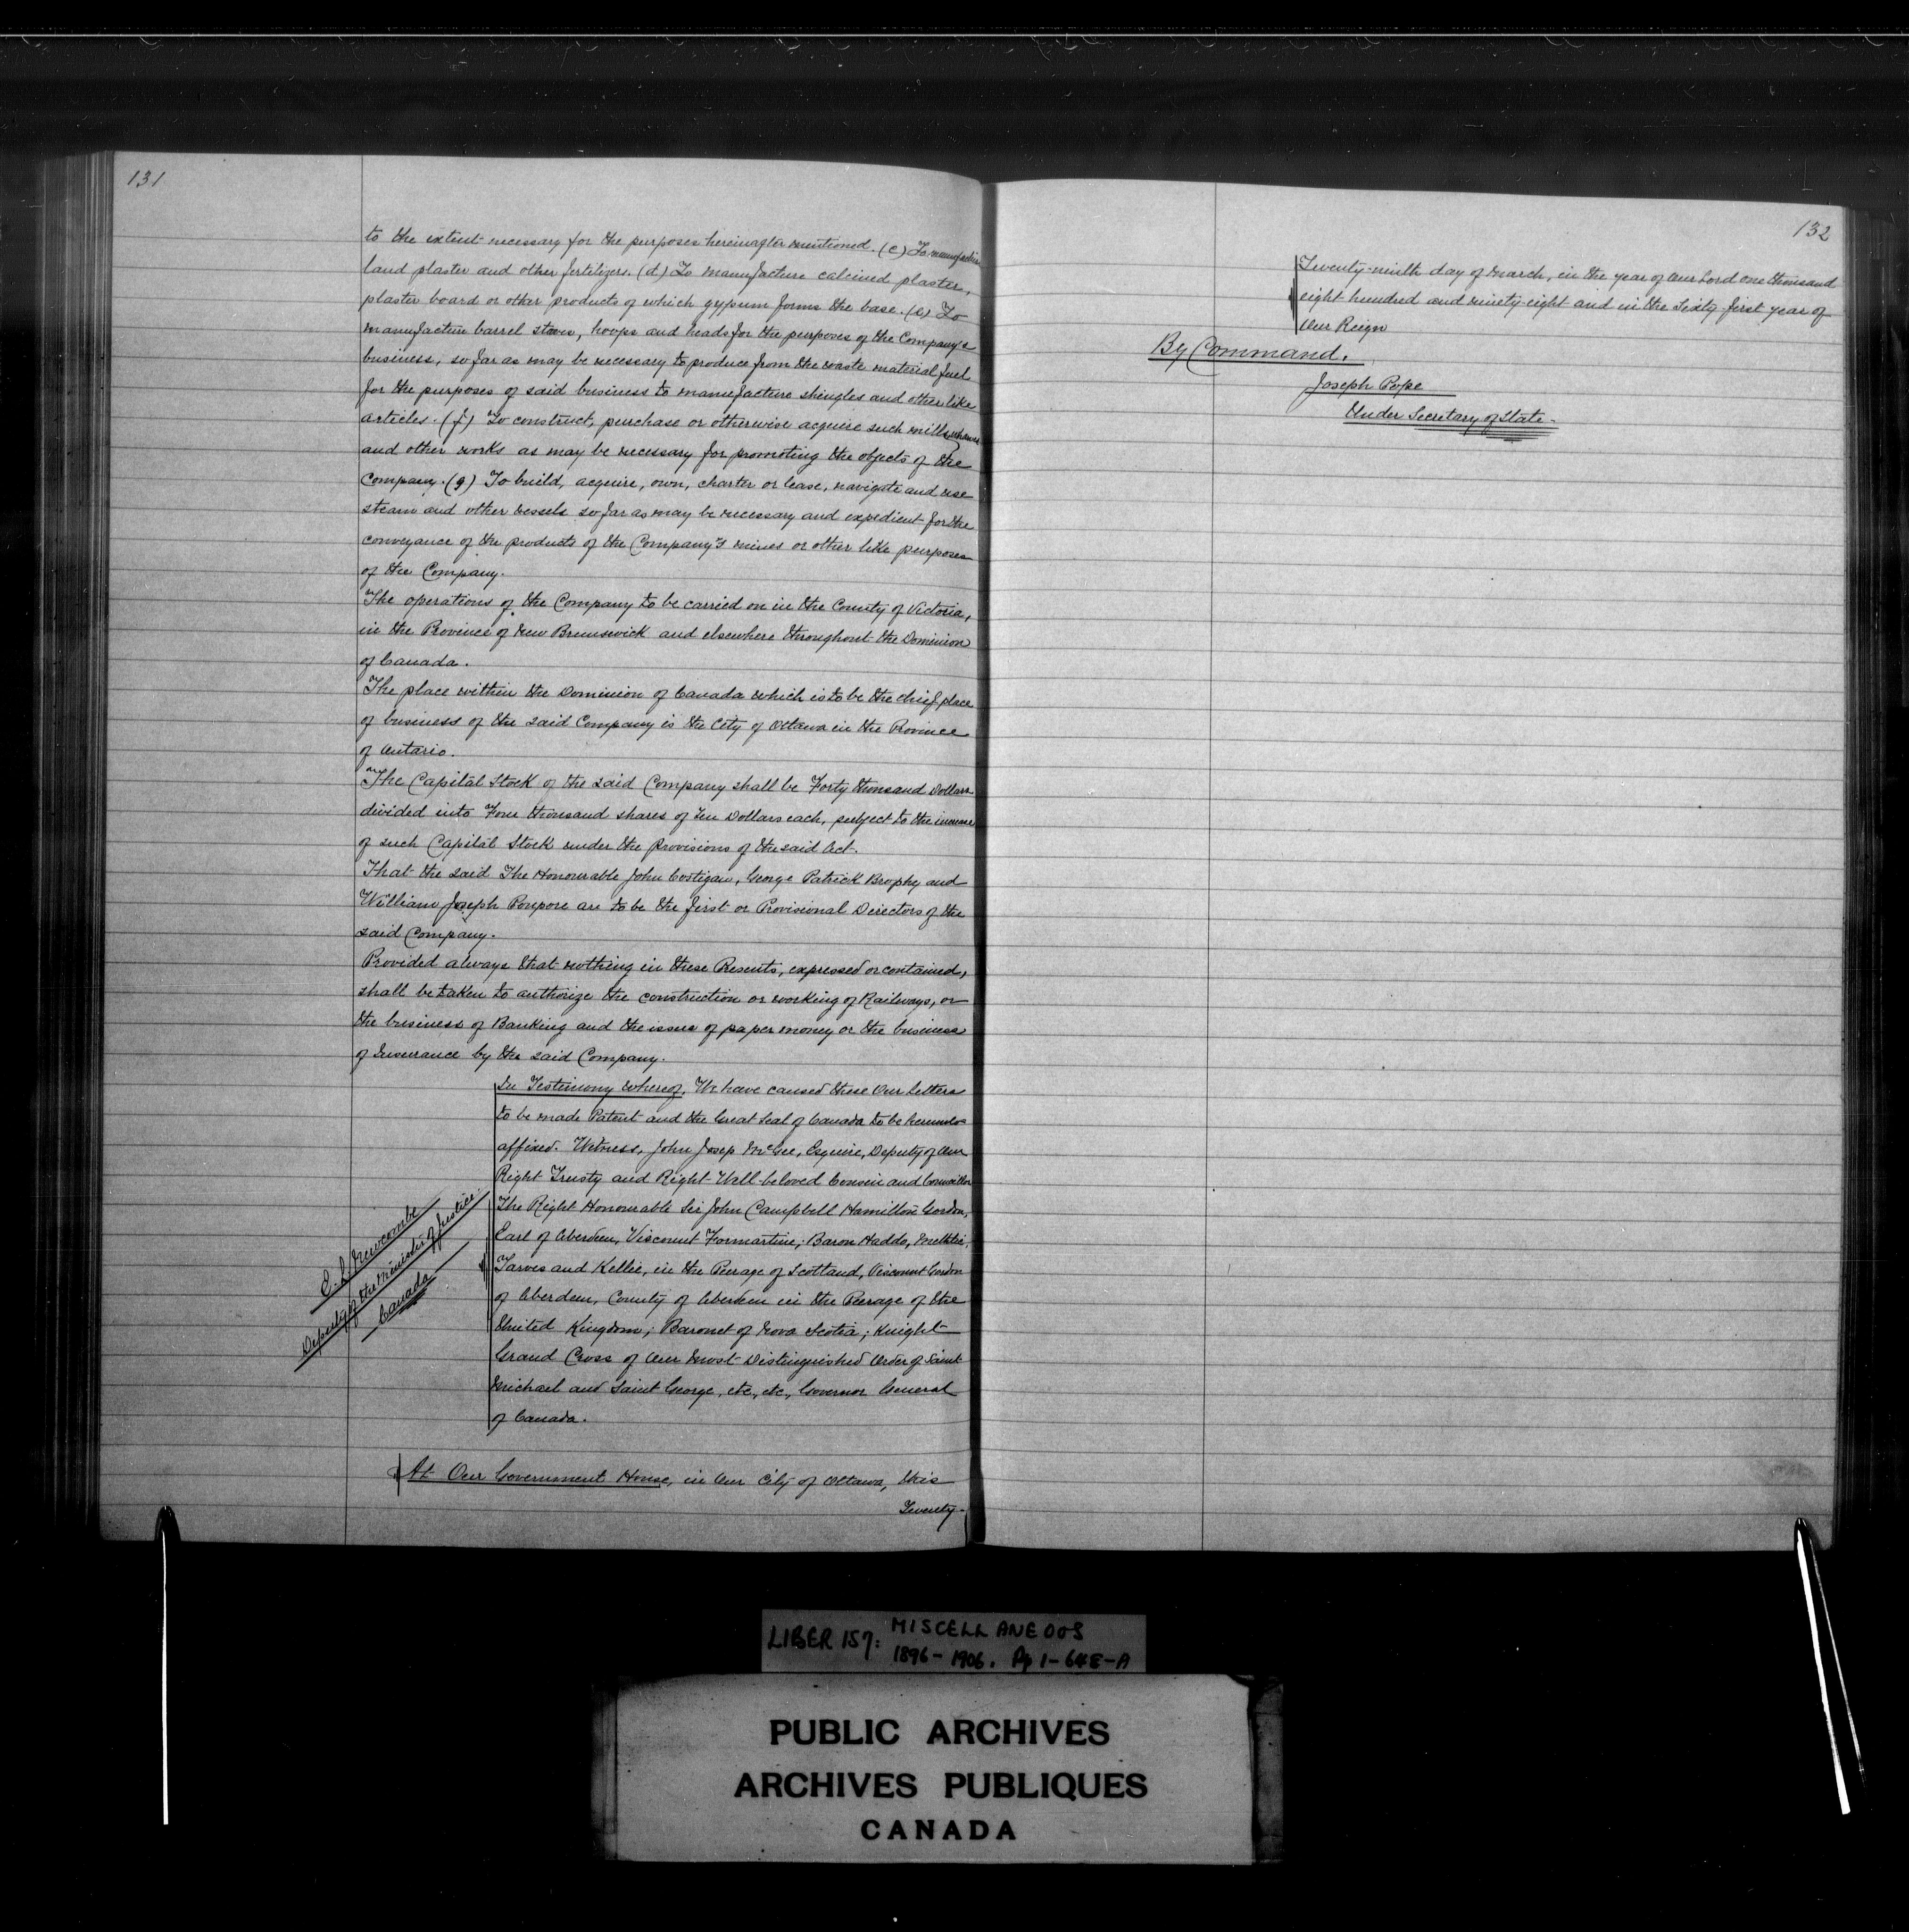 131
to the extent necessary for the purposes hereinafter mentioned. (c) To manufacture
land plaster and other fertilizers. (d) To manufacture calcined plaster,
plaster board or other products of which gypsum forms the base. (e) To
manufacture barrel staves, hoops and heads for the purposes of the Company's
business, so far as may be necessary to produce from the waste material fuel
for the purposes of said business to manufacture shingles and other like
articles. (f) To construct, purchase or otherwise acquire such mills, wharves
and other works as may be necessary for promoting the objects of the
Company. (g) To build, acquire, own, charter or lease, navigate and use
steam and other vessels so far as may be necessary and expedient for the
conveyance of the products of the Company's mines or other like purposes
of the Company.
The operations of the Company to be carried on in the County of Victoria,
in the Province of New Brunswick and elsewhere throughout the Dominion
of Canada.
The place within the Dominion of Canada which is to be the chief place
of business of the said Company is the City of Ottawa in the Province
of Ontario.
The Capital Stock of the said Company shall be Forty thousand Dollars
divided into Four thousand shares of Ten Dollars each, subject to the increase
of such Capital Stock under the provisions of the said Act.
That the said The Honourable John Costigan, George Patrick Brophy and
William Joseph Poupore are to be the first or Provisional Directors of the
said Company.
Provided always that nothing in these Presents, expressed or contained,
shall be taken to authorize the construction or working of Railways, or
the business of Banking and the issue of paper money or the business
of Insurance by the said Company.
In Testimony whereof, We have caused these Our Letters
to be made Patent and the Great Seal of Canada to be hereunto
affixed. Witness, John Josep McGee, Esquire, Deputy of Our
Right Trusty and Right Well-beloved Cousin and Councillor
The Right Honourable Sir John Campbell Hamilton Gordon,
Earl of Aberdeen, Viscount Formartine; Baron Haddo, Methlic,
Tarves and Kellie, in the Peerage of Scotland, Viscount Gordon
of Aberdeen, County of Aberdeen in the Peerage of the
United Kingdom; Baronet of Nova Scotia; Knight
Grand Cross of Our Most Distinguished Order of Saint
Michael and Saint George, etc, etc, Governor General
of Canada.
E. L. Newcombe
Deputy of the Minister of Justice
Canada
At Our Government House, in Our City of Ottawa, this
Twenty-
132
Twenty-ninth day of March, in the year of Our Lord one thousand
eight hundred and ninety-eight and in the Sixty-first year of
Our Reign
By Command.
Joseph Pope
Under Secretary of State-
LIBER 157: MISCELLANEOUS
1896-1906. Pp 1-648-A
PUBLIC ARCHIVES
ARCHIVES PUBLIQUES
CANADA